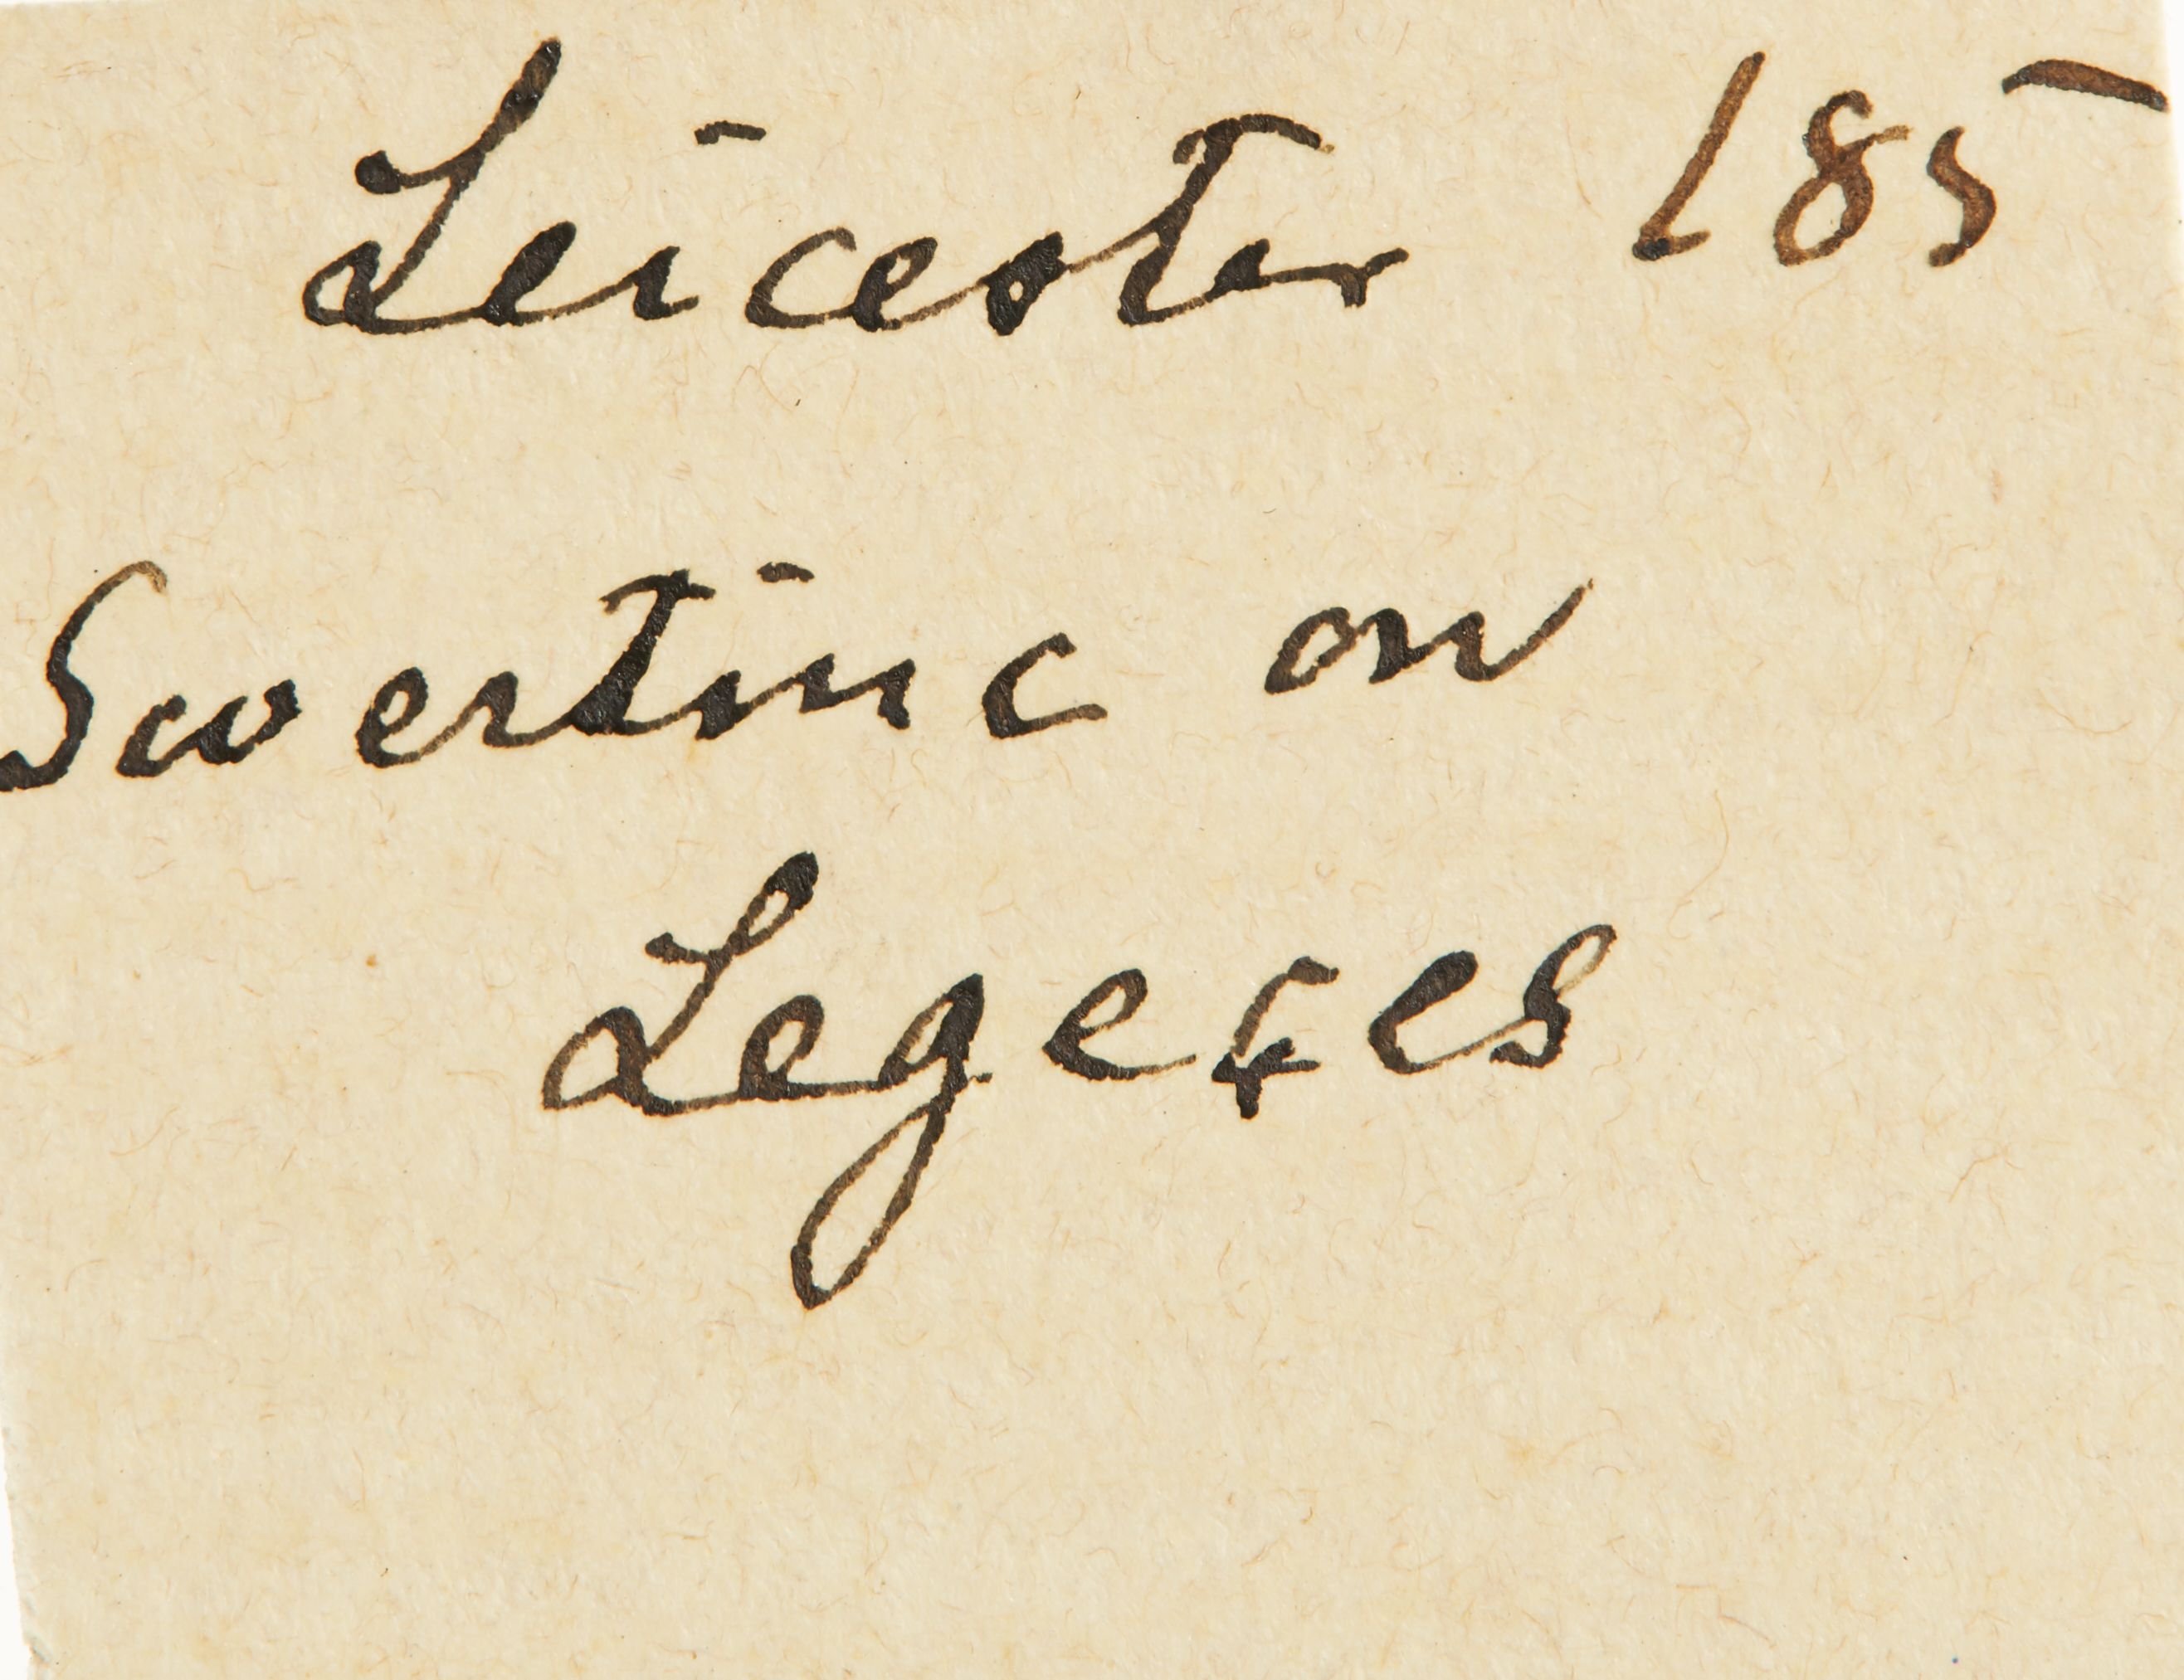 Leicester 185
Swertinc on
Legeces